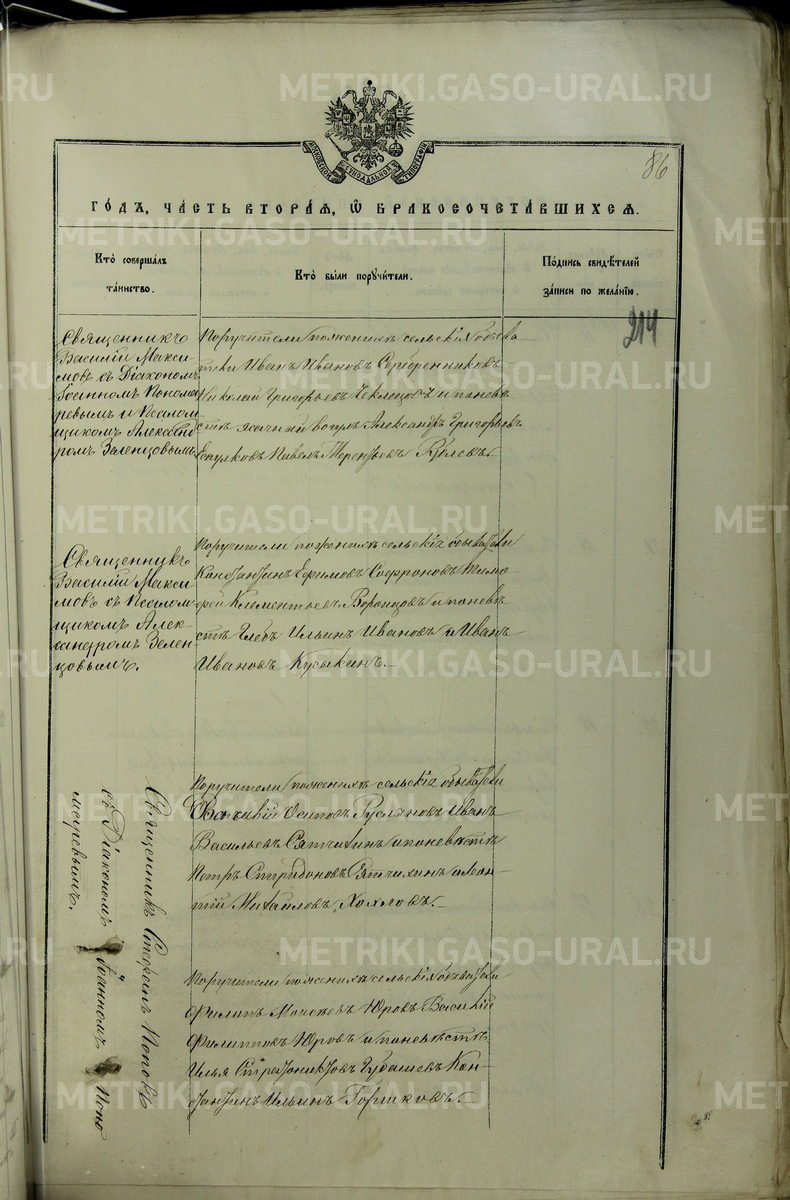 METRIKI.GASO-URAL.RU
86
МОСКОВСКОЙ СѴНОДАЛЬНОЙ ТИПОГРАФІИ
ГО́ДЪ, ЧА́СТЬ ВТОРА́Я, Ѡ БРАКОСОЧЕТА́ВШИХСЯ.
Кто̀ соверша́лъ
та́инство.
Кто̀ бы́ли порꙋчи́тели.
По́дпись свидѣ́телей
за́писи по жела́нію.
214
Священникъ
Василій Макси-
мовъ съ Діакономъ
Іоанномъ Понома
ревымъ и Псалом
щикомъ Александ
ромъ Зеленцовымъ
Поручители по женихѣ сельскія обыва
тели Иванъ Ивановъ Серебренниковъ
Николай Григорьевъ и по невѣ
стѣ Александръ Григорьевъ
Павелъ Терентьевъ
Священникъ
Василій Макси-
мовъ съ Псалом
щикомъ Алек-
сандромъ Зелен
цовымъ.
Поручители по женихѣ сельскія обыватели
Константинъ Ефимовъ Софроновъ Тимо-
фей Климентьевъ Воронцовъ и по невѣ
стѣ Глебъ Ильинъ Ивановъ и Иванъ
Ивановъ Кусыкинъ.
Священникъ Стефанъ Поповъ
съ Діакономъ Іоанномъ Поно
маревымъ.
Поручители по женихѣ сельскія обыватели
Осиповъ Русляновъ Иванъ
Васильевъ Сятчихинъ и по невѣстѣ
Петръ Спиридоновъ Сятчихинъ и Леон-
тій Михайловъ Хохловъ.
Поручители по женихѣ сельскія обыватели
Филипъ Моисеевъ Юровъ Василій
Филипповъ Юровъ и по невѣстѣ
Илья Стратониковъ Губашевъ Кон-
стантинъ Ильинъ Горшковъ.